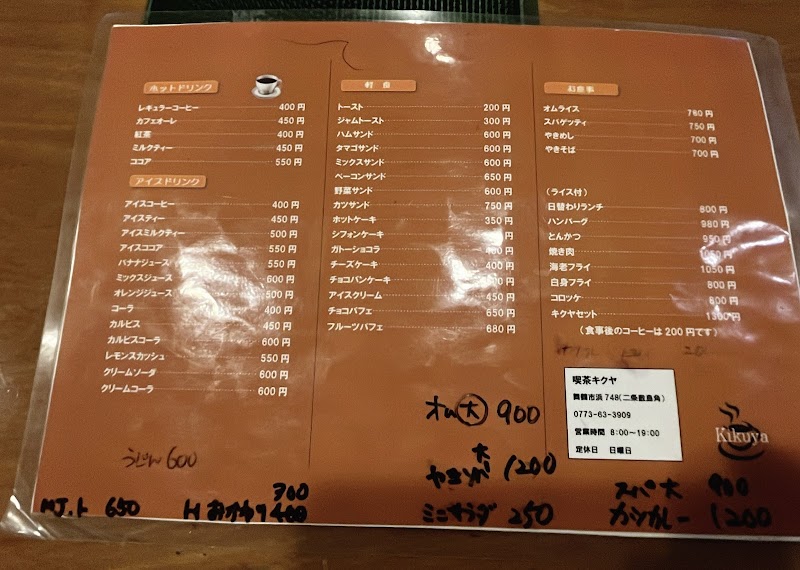 ホットドリンク
レギュラーコーヒー 400 円
カフェオーレ 450 円
紅茶 400 円
ミルクティー 450 円
ココア 550 円
アイスドリンク
アイスコーヒー 400 円
アイスティー 450 円
アイスミルクティー 500 円
アイスココア 550 円
バナナジュース 550 円
ミックスジュース 600 円
オレンジジュース 500 円
コーラ 400 円
カルピス 450 円
カルピスコーラ 600 円
レモンスカッシュ 550 円
クリームソーダ 600 円
クリームコーラ 600 円
600
MJ.ト 650
300
H おかわり 400
軽食
トースト 200 円
ジャムトースト 300 円
ハムサンド 600 円
タマゴサンド 600 円
ミックスサンド 600 円
ベーコンサンド 650 円
野菜サンド 600 円
カツサンド 750 円
ホットケーキ 350 円
シフォンケーキ 円
ガトーショコラ 円
チーズケーキ 400 円
チョコパンケーキ 円
アイスクリーム 450 円
チョコパフェ 650 円
フルーツパフェ 680 円
オム大 900
大
1200
ミニサラダ 250
お食事
オムライス 780 円
スパゲッティ 750 円
やきめし 700 円
やきそば 700 円
(ライス付)
日替わりランチ 800 円
ハンバーグ 980 円
とんかつ 950 円
焼き肉 円
海老フライ 1050 円
白身フライ 800 円
コロッケ 800 円
キクヤセット 1300 円
(食事後のコーヒーは 200 円です)
喫茶キクヤ
舞鶴市浜 748(二条敷島角)
0773-63-3909
営業時間 8:00～19:00
定休日 日曜日
Kikuya
スパ大 900
カツカレー 1200